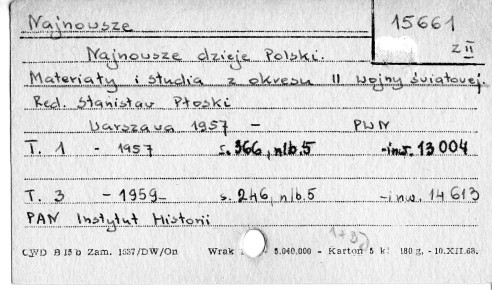 Najnowsze
15661
z II
Najnowsze dzieje Polski.
Materiały i studia z okresu II wojny światowej.
Red. Stanisław Płoski
Warszawa 1957 - PWN
T. 1 - 1957 s. 366, nlb. 5 - inw. 13004
T. 3 - 1959 - s. 246, nlb. 5 - inw. 14613
PAN Instytut Historii
CWD B 15 b Zam. 1537/DW/On Wrak 5.040.000 - Karton 5 kl 180 g. - 10.XII.68.